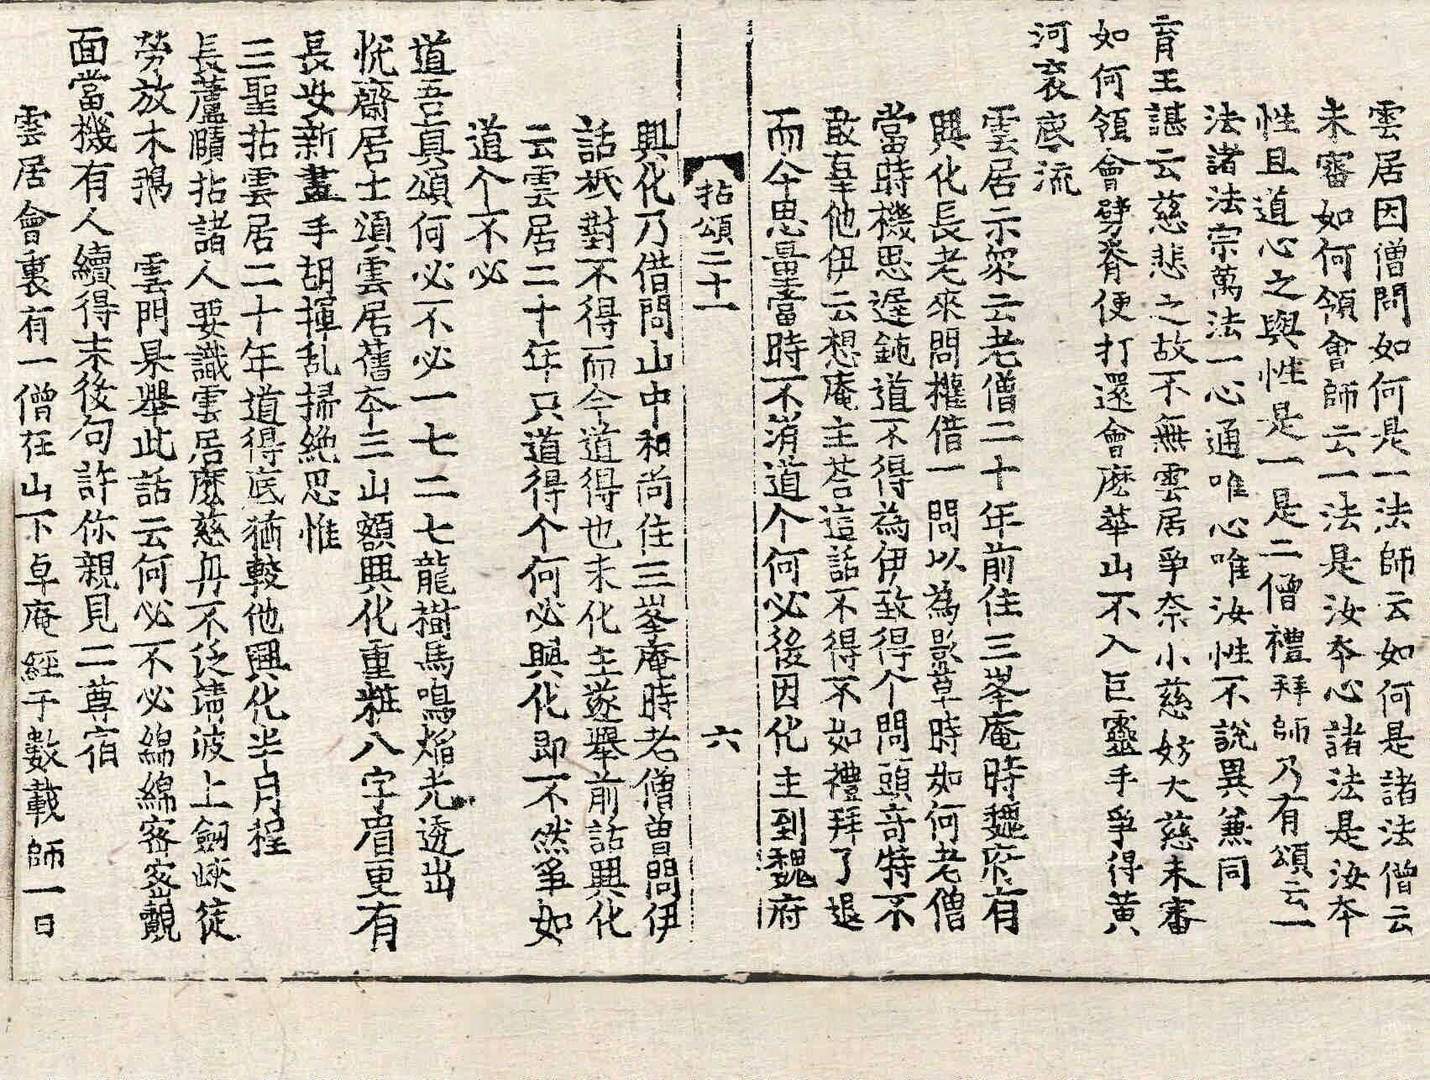 雲居因僧問如何是一法師云如何是諸法僧云
未審如何領會師云一法是汝夲心諸法是汝夲
性且道心之與性是一是二僧禮拜師乃有頌云一
法諸法宗萬法一心通唯心唯汝性不說異兼同
育王諶云慈悲之故不無雲居爭奈小慈妨大慈未審
如何領會劈脊便打還會麽華山不入巨靈手爭得黃
河衮底流
雲居示衆云老僧二十年前住三峯庵時魏府有
興化長老來問權借一問以為影草時如何老僧
當時機思遲鈍道不得為伊致得个問頭竒特不
敢辜他伊云想庵主荅這話不得不如禮拜了退
而今思量當時不消道个何必後因化主到魏府
拈頌二十一
六
興化乃借問山中和尚住三峯庵時老僧曽問伊
話祇對不得而今道得也未化主遂舉前話興化
云雲居二十年只道得个何必興化即不然爭如
道个不必
道吾真頌何必不必一七二七龍樹馬鳴焰光透出
恱齋居士頌雲居舊夲三山額興化重粧八字眉更有
長安新畫手胡揮乱掃絶思惟
三聖拈雲居二十年道得底猶較他興化半月程
長蘆賾拈諸人要識雲居麽慈舟不泛清波上劔峽徒
勞放木鵝　雲門杲舉此話云何必不必綿綿密密覿
面當機有人續得末後句許你親見二尊宿
雲居會裏有一僧在山下卓庵經于數載師一日